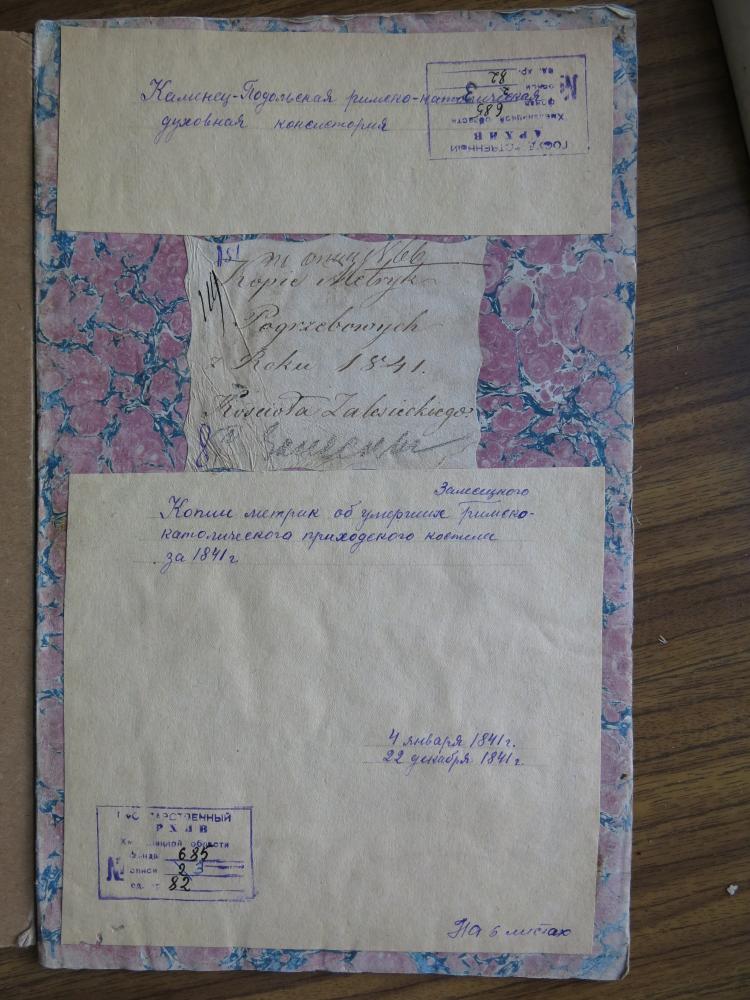 Каминец-Подольская римско-католическая
духовная консистория
ГОСУДАРСТВЕННЫЙ
АРХИВ
Хмельницкой области
фонд 685
№ описи 3
ед. хр. 82
151
Kopie Metryk
Pogrzebowych
z Roku 1841.
Kościoła Zalesieckiego
Залесецкого
Копии метрик об умерших римско-
католического приходского костела
за 1841 г
4 января 1841 г.
22 декабря 1841 г.
ГОСУДАРСТВЕННЫЙ
АРХИВ
Хмельницкой области
фонд 685
№ описи 3
ед. хр. 82
На 6 листах